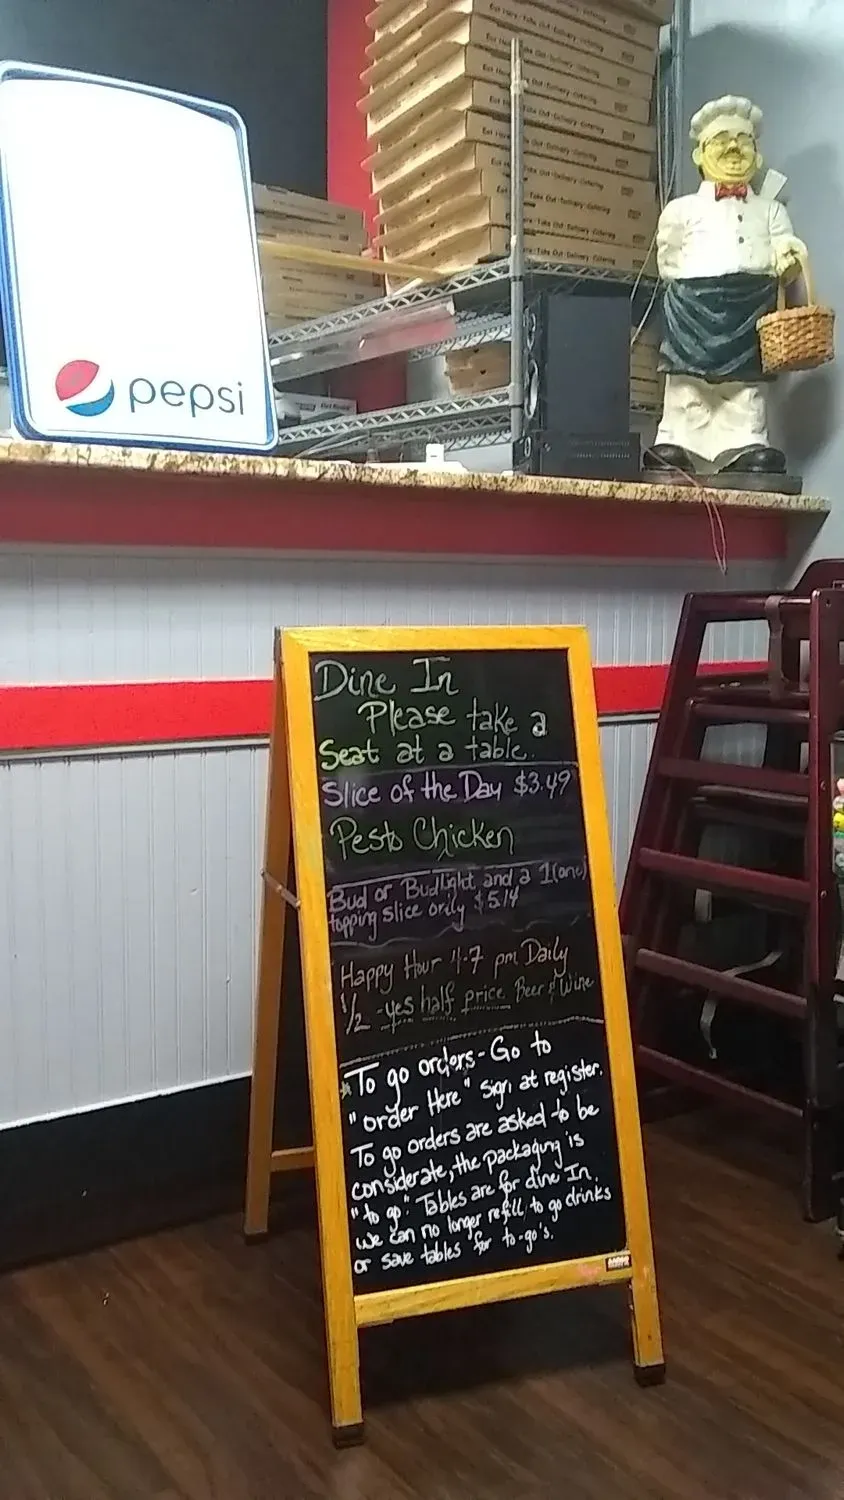 Eat Here · Take Out · Delivery · Catering
pepsi
Dine In
Please take a
Seat at a table.
Slice of the Day $3.49
Pesto Chicken
Bud or Budlight and a 1(one)
topping slice only $5.14
Happy Hour 4-7 pm Daily
1/2 - yes half price Beer & Wine
*To go orders - Go to
"order Here" sign at register.
To go orders are asked to be
considerate, the packaging is
"to go". Tables are for dine In.
we can no longer refill to go drinks
or save tables for to-go's.